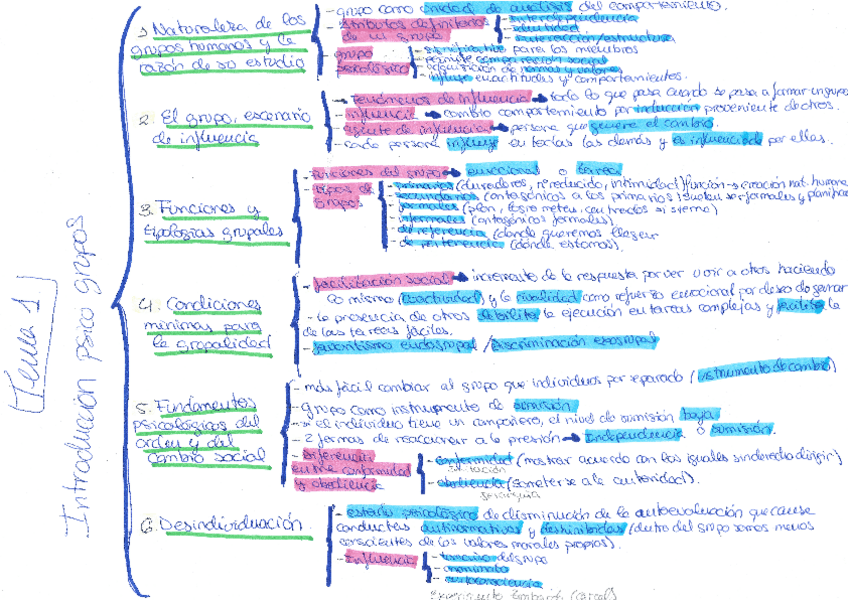 Tema 1
Introducción psico grupos
1. Naturaleza de los
grupos humanos y la
razón de su estudio
- grupo como unidad de análisis del comportamiento.
- atributos definitorios
de un grupo
- interdependencia
- identidad
- interacción/estructura
- grupo
psicológico
- significativo para los miembros
- permite comparación social
- adquisición de normas y valores
- influye en actitudes y comportamientos.
2. El grupo, escenario
de influencia
- Fenómenos de influencia → todo lo que pasa cuando se pasa a formar un grupo
- influencia → cambio comportamiento por inducción proveniente de otros.
- agente de influencia → persona que genera el cambio.
- cada persona influye en todas las demás y es influenciada por ellas.
3. Funciones y
tipologías grupales
- funciones del grupo → emocional o tarea
- tipos de
grupos
- primarios (duraderos, nº reducido, intimidad) función → creación nat. humana
- secundarios (antagónicos a los primarios) suelen ser formales y planific
- formales (plan, logro metas, centrados sistema)
- informales (antagónicos formales)
- de referencia (donde queremos llegar
- de pertenencia (donde estamos).
4. Condiciones
mínimas para
la grupalidad
- facilitación social → incremento de la respuesta por ver u oír a otros haciendo
lo mismo (coactividad) y la rivalidad como refuerzo emocional por deseo de ganar
- la presencia de otros debilita la ejecución en tareas complejas y facilita la
de las tareas fáciles.
- favoritismo endogrupal / discriminación exogrupal
5. Fundamentos
psicológicos del
orden y del
cambio social
- más fácil cambiar al grupo que individuos por separado (instrumento de cambio)
- grupo como instrumento de sumisión
- si el individuo tiene un compañero, el nivel de sumisión baja
- 2 formas de reaccionar a la presión → Independencia o sumisión.
- diferencia
entre conformidad
y obediencia
- conformidad (mostrar acuerdo con los iguales sin derecho a dirigir)
imitación
- obediencia (someterse a la autoridad).
jerarquía
6. Desindividuación
- estado psicológico de disminución de la autoevaluación que causa
conductas antinormativas y deshinibidas (dentro del grupo somos menos
conscientes de los valores morales propios).
- Influencia
- tamaño del grupo
- anonimato
- autoconsciencia
experimento Zimbardo (cárcel)